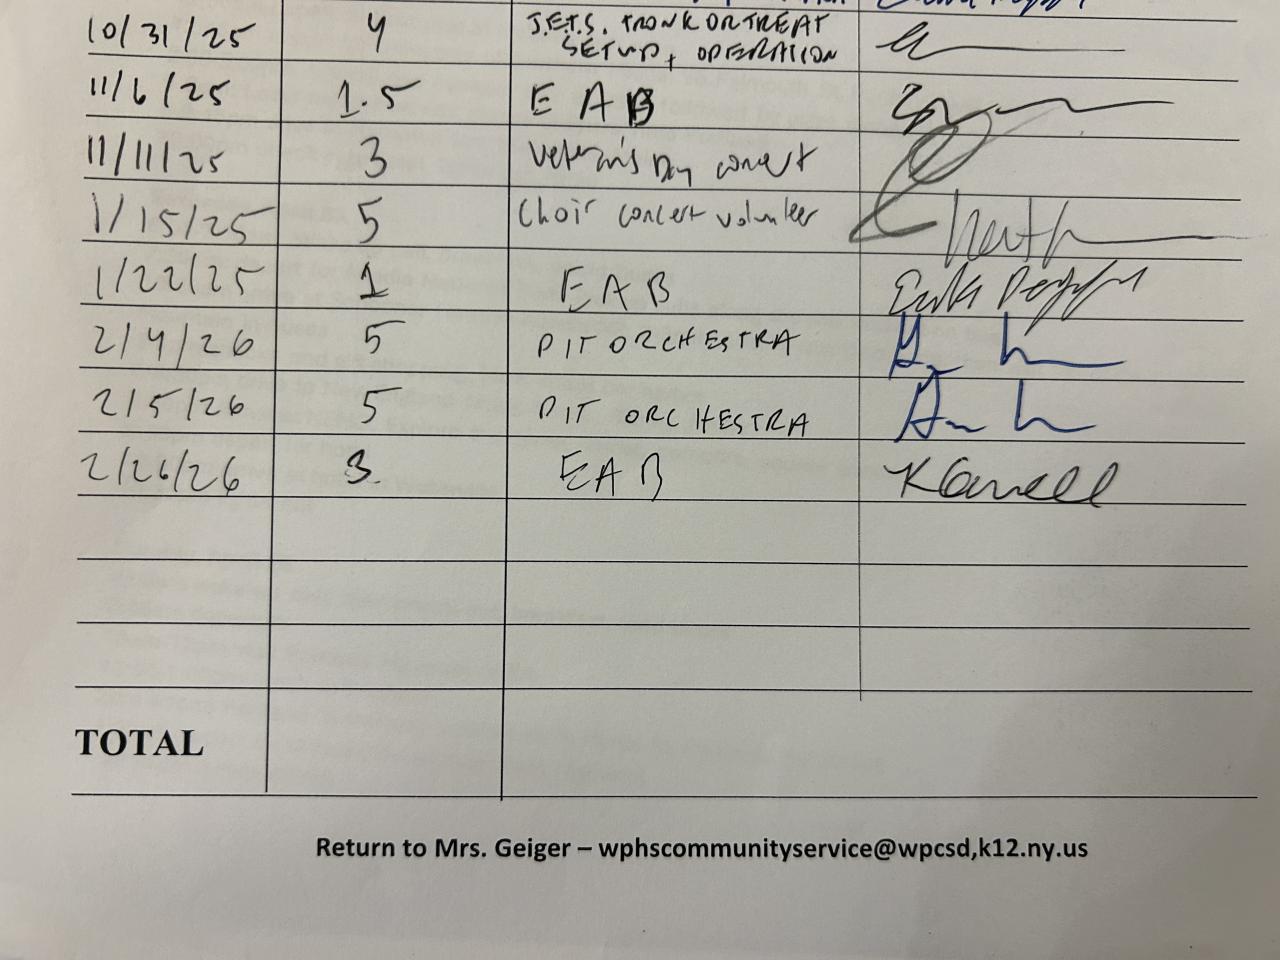 10/31/25 4 J.E.T.S. TRONK OR TREAT
SETUP + OPERATION
11/6/25 1.5 E A B
11/11/25 3 Veteran's Day concert
1/15/25 5 Choir concert volunteer
1/22/25 1 E A B
2/4/26 5 PIT ORCHESTRA
2/5/26 5 PIT ORCHESTRA
2/26/26 3 EAB
TOTAL
Return to Mrs. Geiger – wphscommunityservice@wpcsd,k12.ny.us